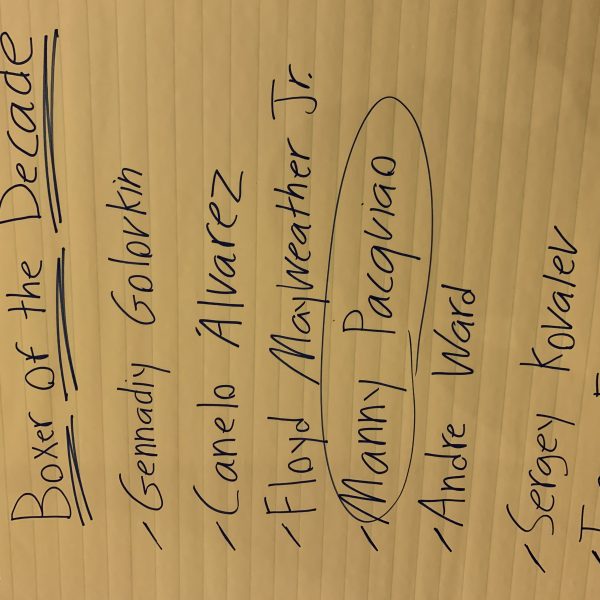 Boxer of the Decade
- Gennadiy Golovkin
- Canelo Álvarez
- Floyd Mayweather Jr.
- Manny Pacquiao
- Andre Ward
- Sergey Kovalev